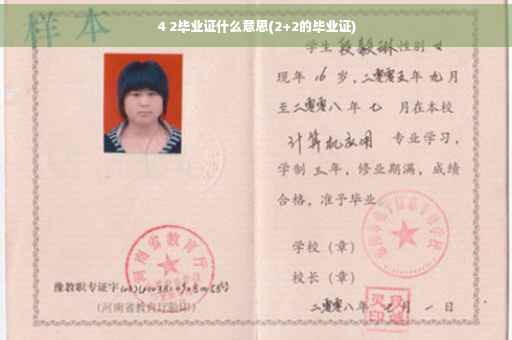 4 2毕业证什么意思(2+2的毕业证)
样本
学生段毅琳性别女
现年16岁,二零零五年九月
至二零零八年七 月在本校
计算机应用 专业学习,
学制三年,修业期满,成绩
合格,准予毕业
学校(章)
校长(章)
二零零八年七月一日
河南省教育厅
豫教职专证字
(河南省教育厅验印)